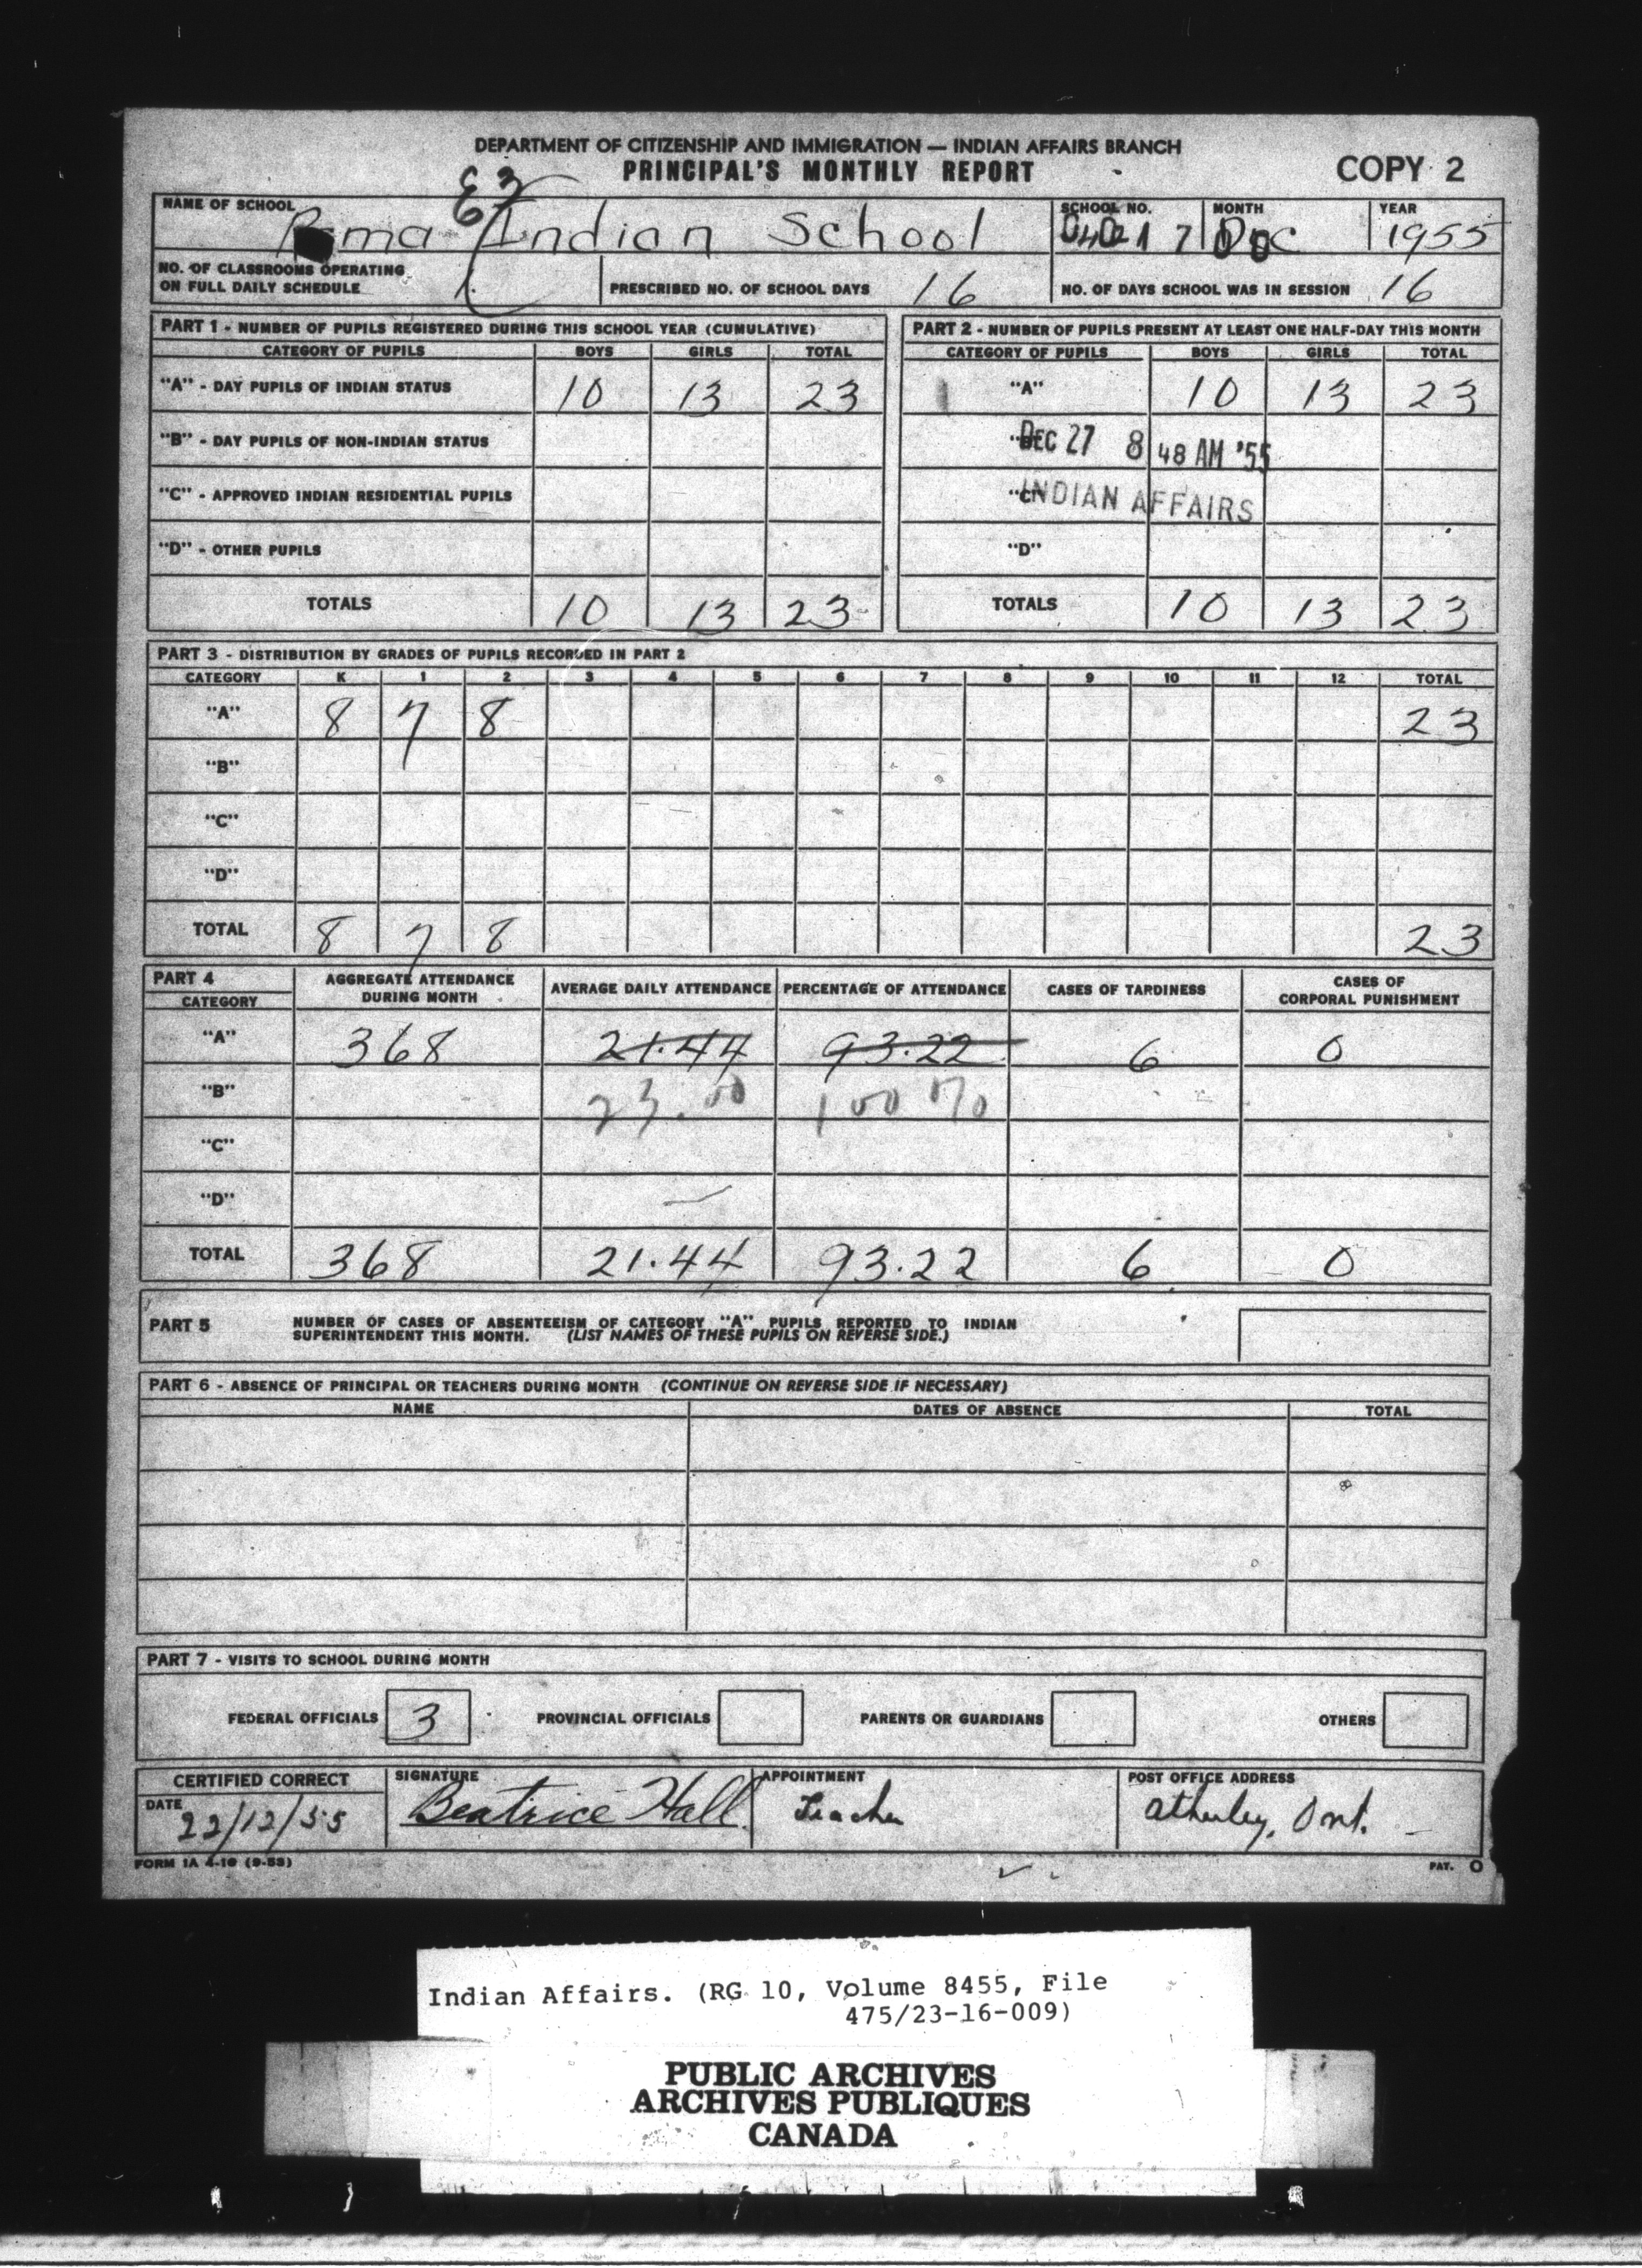 DEPARTMENT OF CITIZENSHIP AND IMMIGRATION — INDIAN AFFAIRS BRANCH
PRINCIPAL'S MONTHLY REPORT
COPY 2
NAME OF SCHOOL SCHOOL NO. MONTH YEAR
Rama Indian School Dec 1955
NO. OF CLASSROOMS OPERATING
ON FULL DAILY SCHEDULE 1 PRESCRIBED NO. OF SCHOOL DAYS 16 NO. OF DAYS SCHOOL WAS IN SESSION 16
PART 1 - NUMBER OF PUPILS REGISTERED DURING THIS SCHOOL YEAR (CUMULATIVE)
CATEGORY OF PUPILS BOYS GIRLS TOTAL
"A" - DAY PUPILS OF INDIAN STATUS 10 13 23
"B" - DAY PUPILS OF NON-INDIAN STATUS
"C" - APPROVED INDIAN RESIDENTIAL PUPILS
"D" - OTHER PUPILS
TOTALS 10 13 23
PART 2 - NUMBER OF PUPILS PRESENT AT LEAST ONE HALF-DAY THIS MONTH
CATEGORY OF PUPILS BOYS GIRLS TOTAL
"A" 10 13 23
DEC 27 8 48 AM '55
"C" INDIAN AFFAIRS
"D"
TOTALS 10 13 23
PART 3 - DISTRIBUTION BY GRADES OF PUPILS RECORDED IN PART 2
CATEGORY K 1 2 3 4 5 6 7 8 9 10 11 12 TOTAL
"A" 8 7 8 23
"B"
"C"
"D"
TOTAL 8 7 8 23
PART 4
CATEGORY AGGREGATE ATTENDANCE DURING MONTH AVERAGE DAILY ATTENDANCE PERCENTAGE OF ATTENDANCE CASES OF TARDINESS CASES OF CORPORAL PUNISHMENT
"A" 368 21.44 93.22 6 0
"B" 23.00 100 %
"C"
"D"
TOTAL 368 21.44 93.22 6 0
PART 5 NUMBER OF CASES OF ABSENTEEISM OF CATEGORY "A" PUPILS REPORTED TO INDIAN
SUPERINTENDENT THIS MONTH. (LIST NAMES OF THESE PUPILS ON REVERSE SIDE.)
PART 6 - ABSENCE OF PRINCIPAL OR TEACHERS DURING MONTH (CONTINUE ON REVERSE SIDE IF NECESSARY)
NAME DATES OF ABSENCE TOTAL
PART 7 - VISITS TO SCHOOL DURING MONTH
FEDERAL OFFICIALS 3 PROVINCIAL OFFICIALS PARENTS OR GUARDIANS OTHERS
CERTIFIED CORRECT SIGNATURE APPOINTMENT POST OFFICE ADDRESS
DATE 22/12/55 Beatrice Hall Teacher Atherley, Ont.
FORM 1A 4-10 (9-53) PAT. O
Indian Affairs. (RG 10, Volume 8455, File
475/23-16-009)
PUBLIC ARCHIVES
ARCHIVES PUBLIQUES
CANADA